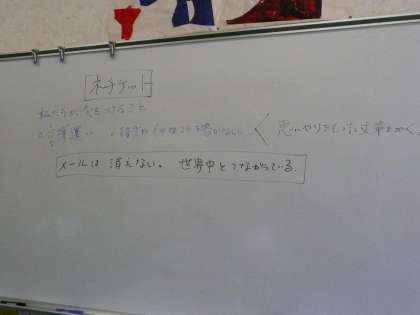 ネチケット
私たちが気をつけること
○言葉遣い ○相手がイヤなコトを書かない < 思いやりをもった文章をかく。
メールは 消えない。 世界中とつながっている。